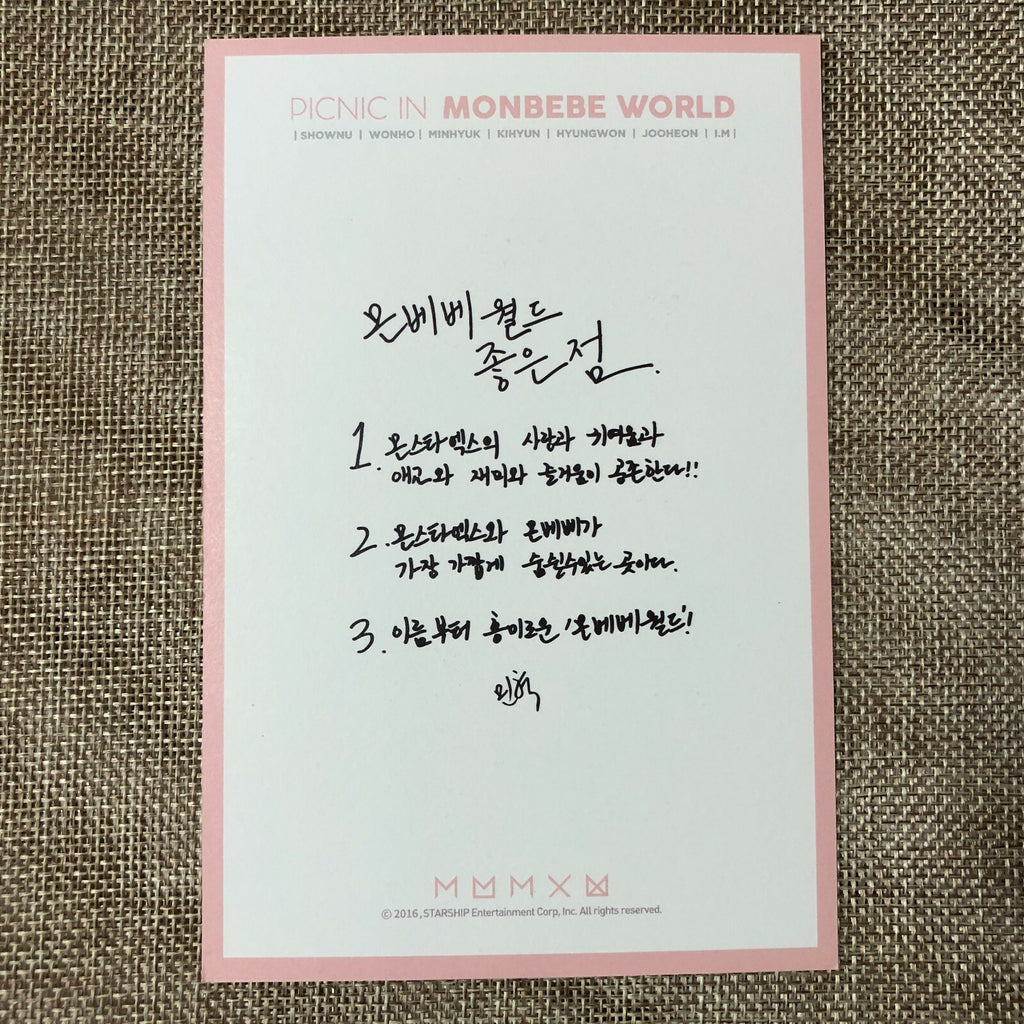 PICNIC IN MONBEBE WORLD
| SHOWNU | WONHO | MINHYUK | KIHYUN | HYUNGWON | JOOHEON | I.M |
몬베베 월드
좋은점.
1. 몬스타엑스의 사랑과 귀여움과
애교와 재미와 즐거움이 공존한다!!
2. 몬스타엑스와 몬베베가
가장 가깝게 숨쉴수있는 곳이다.
3. 이름부터 흥미로운 '몬베베월드'!
민혁
© 2016, STARSHIP Entertainment Corp, Inc. All rights reserved.